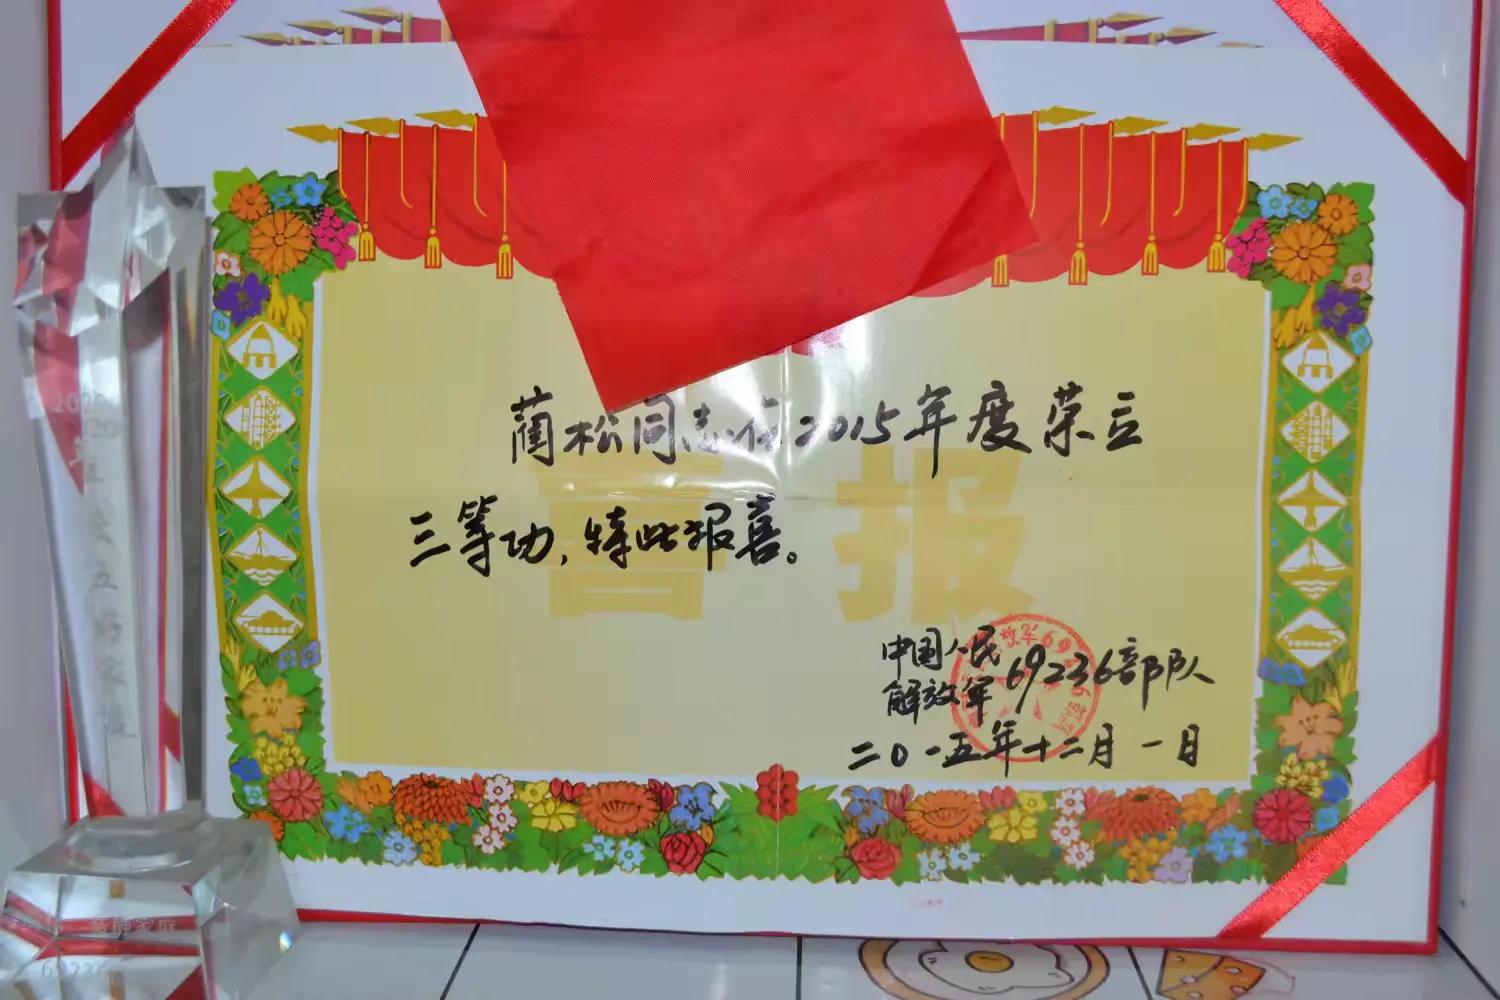 蔺松同志在2015年度荣立
三等功,特此报喜。
喜报
中国人民
解放军69236部队
二0一五年十二月一日